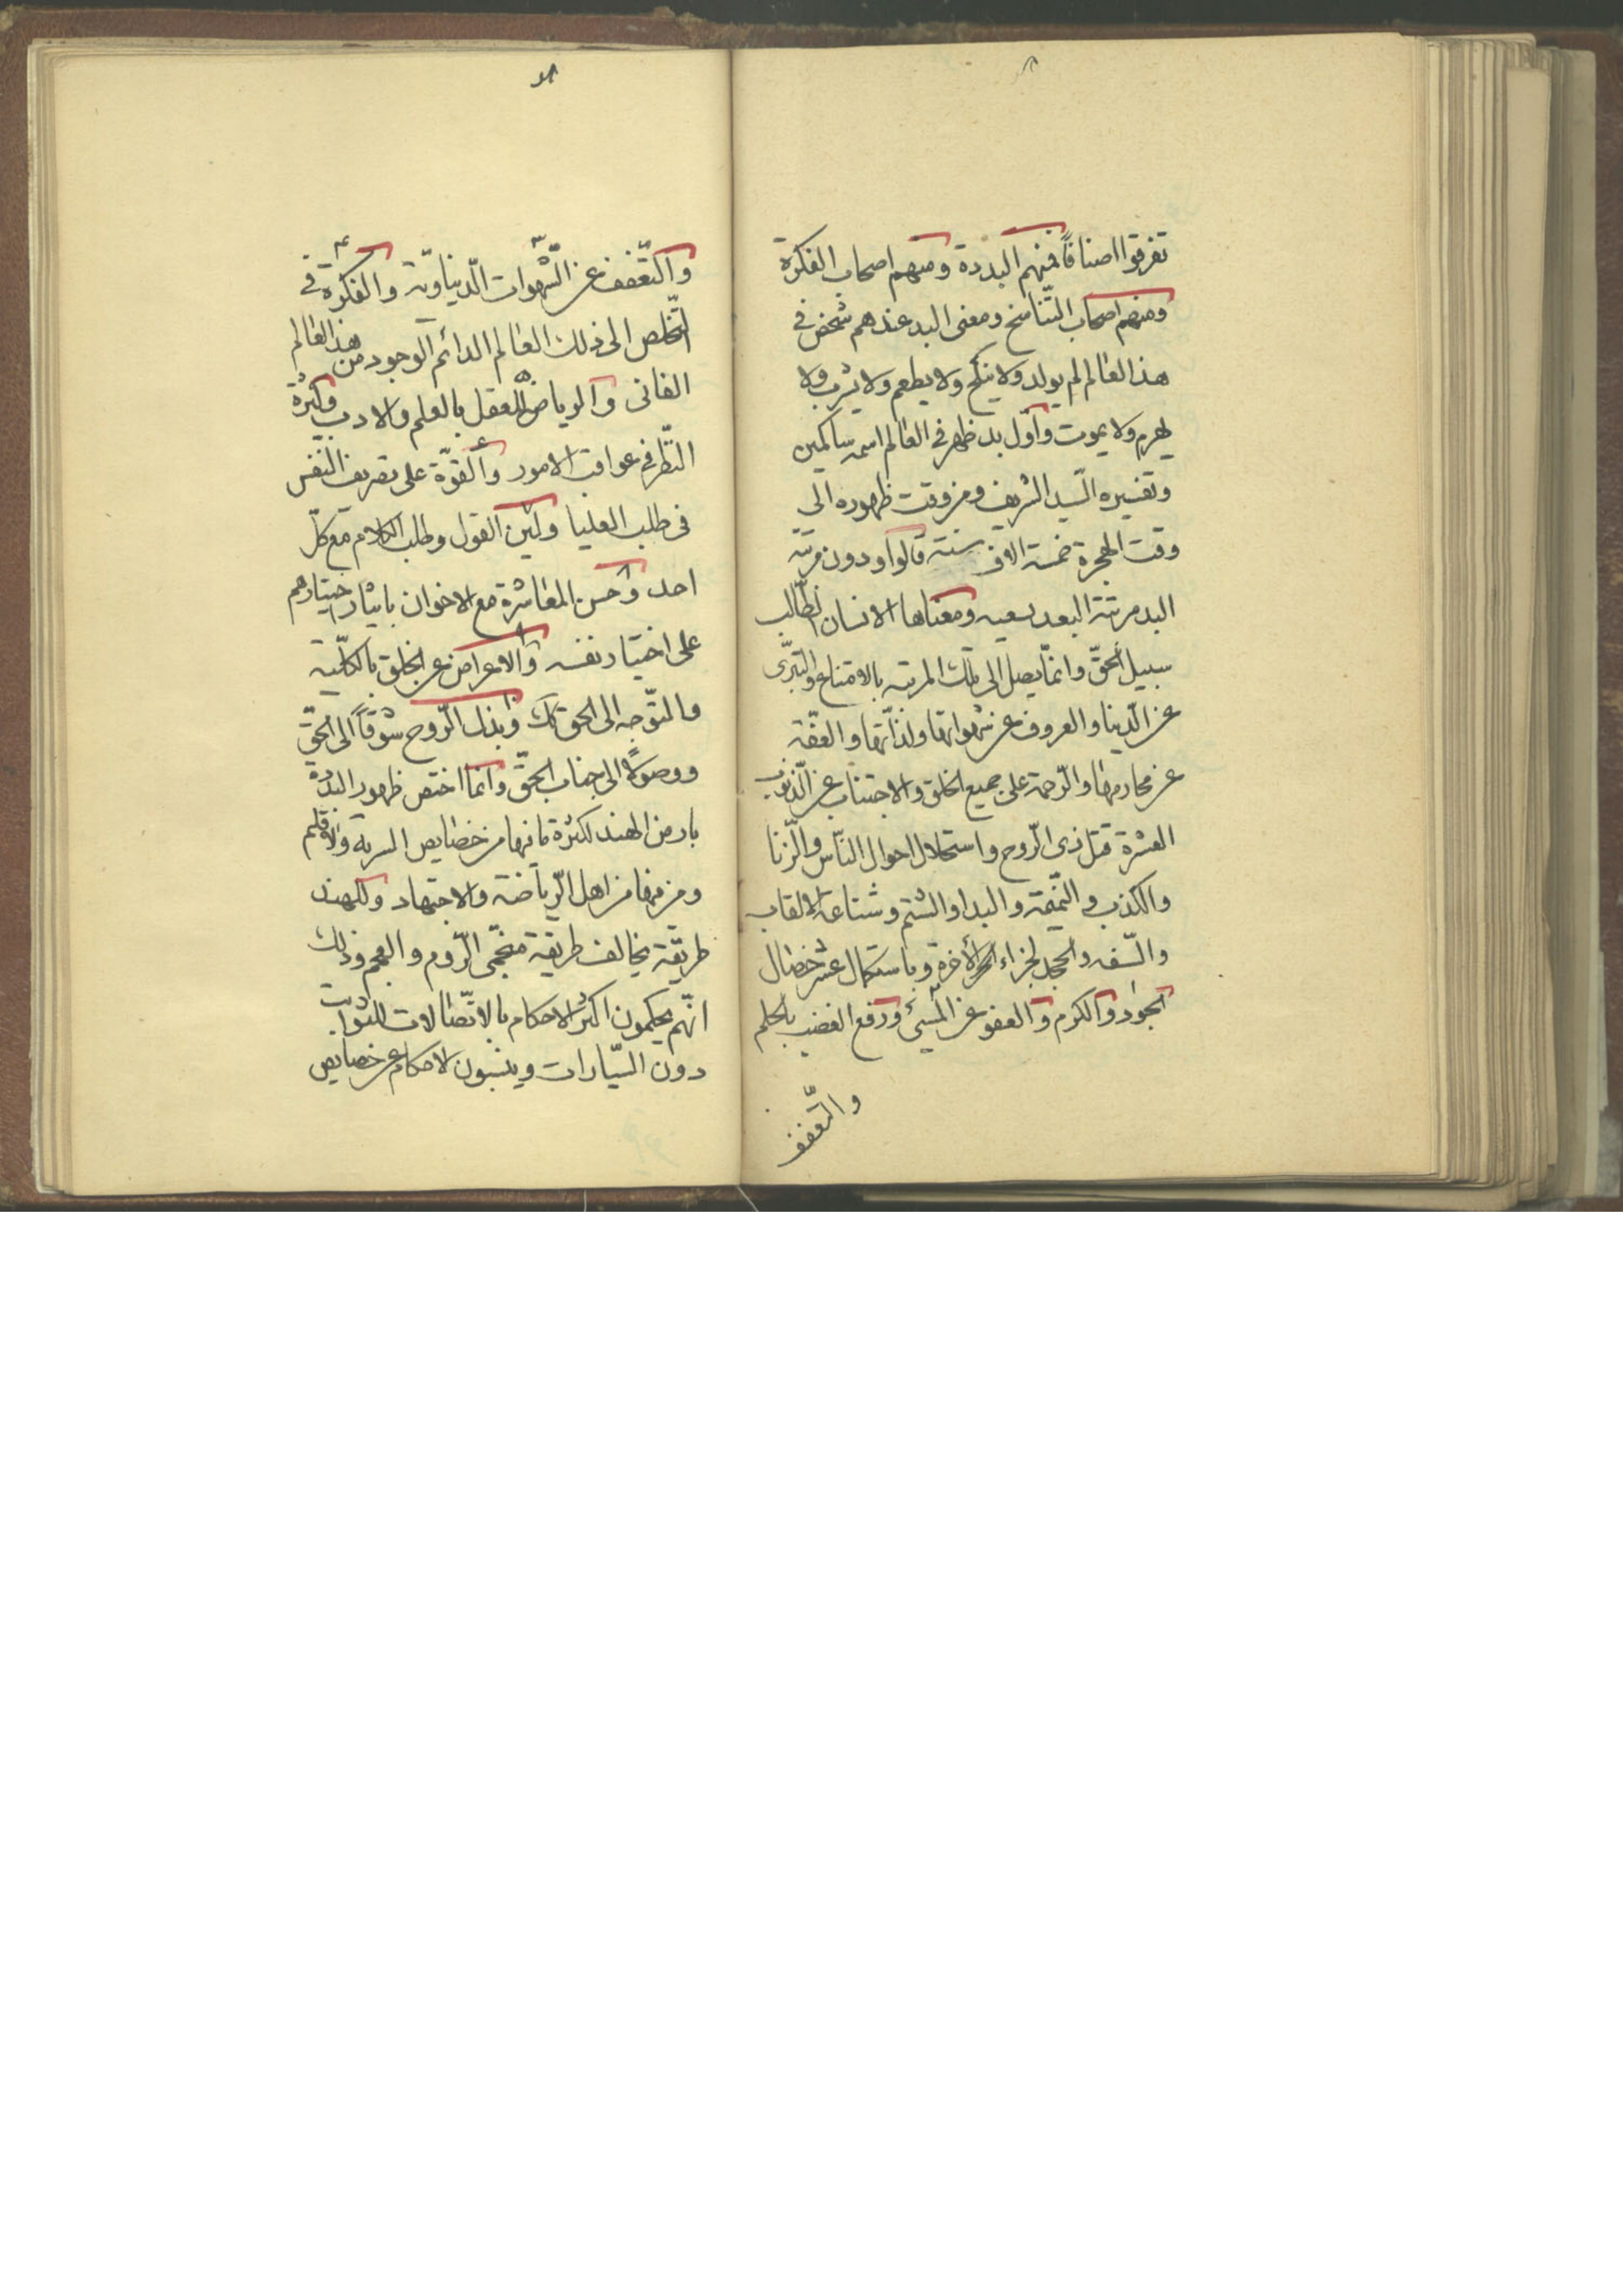 تفرقوا اصنافاً فمنهم البددة ومنهم اصحاب الفكرة
ومنهم اصحاب التّناسخ ومعنى البد عندهم شخص فى
هذا العالم لم يولد ولا ينكح ولا يطعم ولا يشرب ولا
يهرم ولا يموت واوّل بد ظهر فى العالم اسمه ساكمين
وتفسيره السّيد الشريف ومن وقت ظهوره الى
وقت الهجرة خمسة الاف سنة قالوا ودون مرتبة
البد مرتبة البعد يسعيه ومعناها الانسان الطّالب
سبيل الحقّ وانمّا يصل الى تلك المرتبة بالامتناع والتبرّى
عن الدّنيا والعزوف عن شهواتها ولذّاتها والعفّة
عن محارمها والرّحمة على جميع الخلق والاجتناب عن الذّنوب
العشرة قتل ذى الرّوح واستحلال احوال النّاس والزّنا
والكذب والنّميمة والبدا والشتم وشناعة الالقاب
والسّفه والجحد لجزاء الاخرة وباستكمال عشر خصال
الجود والكرم والعفو عن المسيئ ودفع الغضب بالحلم
والتّعفف
والتّعفف عن الشّهوات الدّنياويّة والفكرة فى
التّخلص الى ذلك العالم الدائم الوجود من هذا العالم
الفانى والرياض العقل بالعلم والادب وكثرة
النّظر فى عواقب الامور والقوّة على تصريف النّفس
فى طلب العليا ولين القول وطلب الكلام مع كلّ
احد وحسن المعاشرة مع الاخوان بايثار اختيارهم
على اختيار نفسه والاعراض عن الخلق بالكلّية
والتّوجه الى الحق كك وبذل الرّوح شوقاً الى الحقّ
ووصولاً الى جناب الحقّ وانما اختص ظهور البددة
بارض الهند لكثرة ما فيها من خصايص البرية والاقليم
ومن فيها من اهل الرّياضة والاجتهاد وللهند
طريقة يخالف طريقة منجّمى الرّوم والعجم وذلك
انّهم يحكمون اكثر الاحكام بالاتّصالات للثوابت
دون السّيارات وينسبون الاحكام عن خصايص